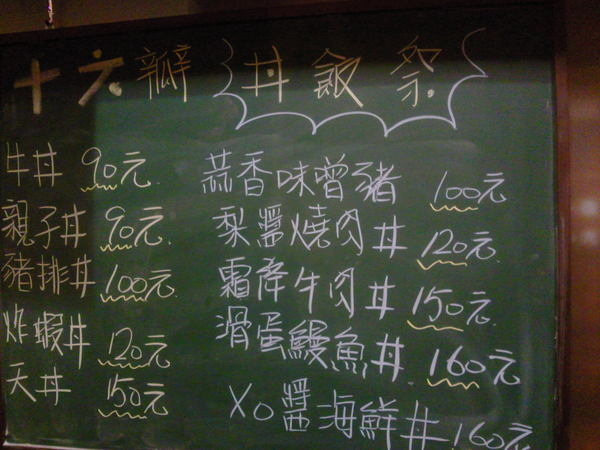 十六瓣 丼飯祭
牛丼 90元
親子丼 90元
豬排丼 100元
炸蝦丼 120元
天丼 150元
蒜香味噌豬 100元
梨醬燒肉丼 120元
霜降牛肉丼 150元
滑蛋鰻魚丼 160元
XO醬海鮮丼 160元